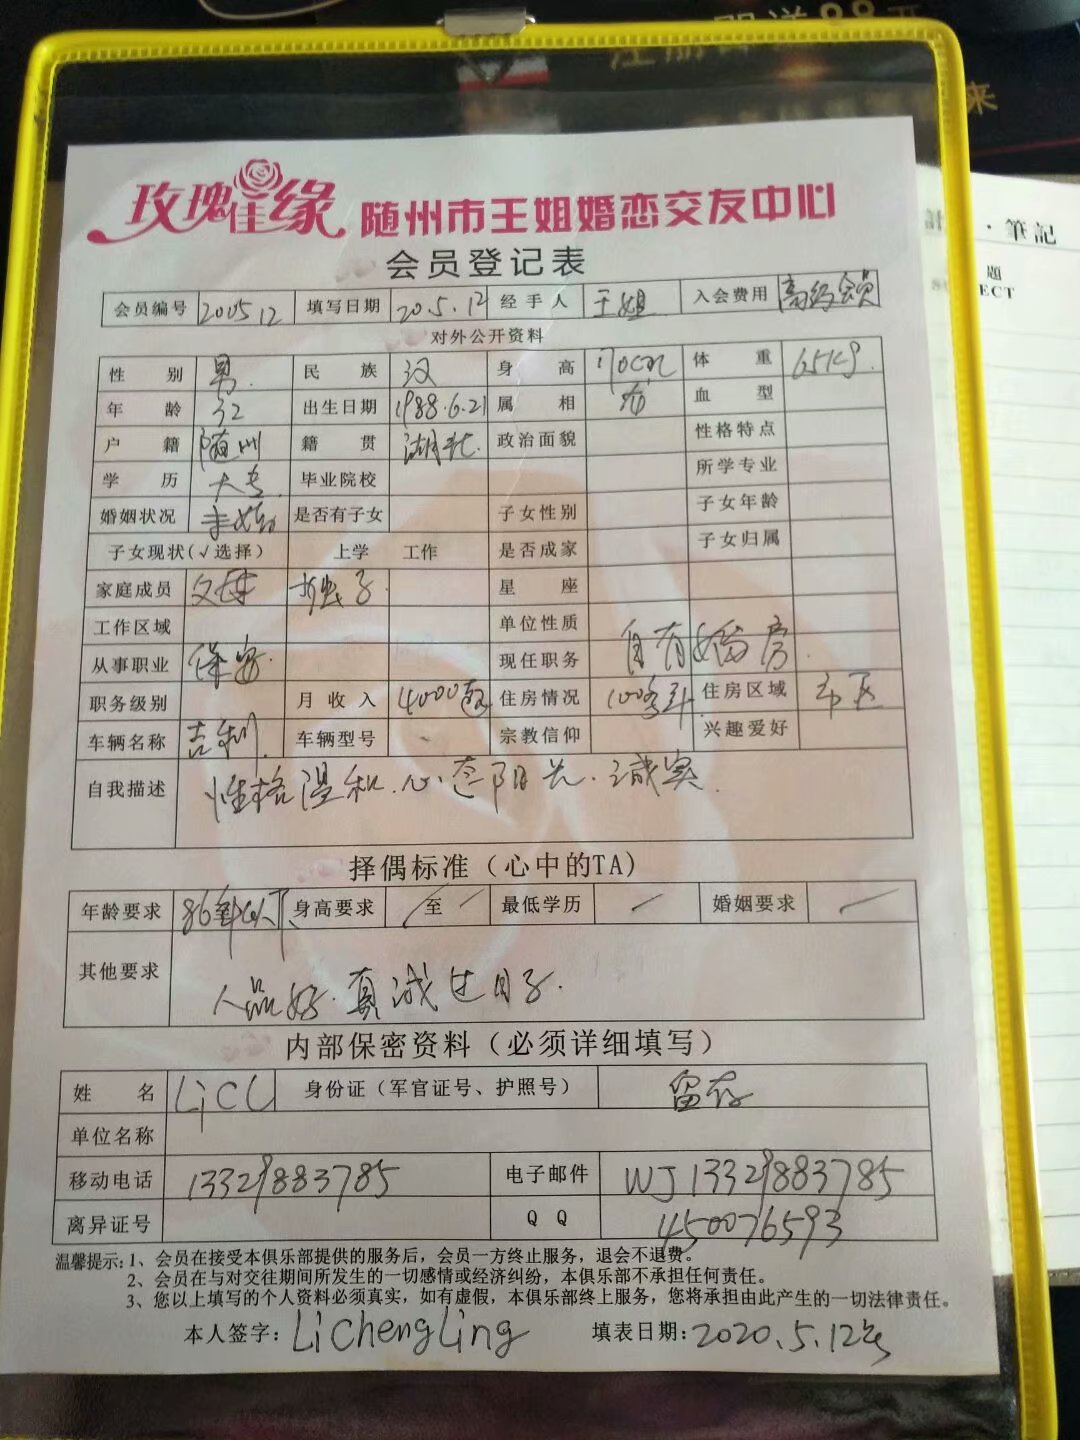 来
· 筆記
題
ECT
玫瑰佳缘 随州市王姐婚恋交友中心
会员登记表
会员编号 200512 填写日期 20.5.12 经手人 王姐 入会费用 高级会员
对外公开资料
性别 男. 民族 汉 身高 170cm 体重 65Kg.
年龄 32 出生日期 1988.6.21 属相 血型
户籍 随州 籍贯 湖北. 政治面貌 性格特点
学历 大专. 毕业院校 所学专业
婚姻状况 未婚 是否有子女 子女性别 子女年龄
子女现状(√选择) 上学 工作 是否成家 子女归属
家庭成员 父母 星座
工作区域 单位性质
从事职业 保安. 现任职务 自有婚房.
职务级别 月收入 4000 住房情况 100多平. 住房区域 市区
车辆名称 吉利. 车辆型号 - 宗教信仰 兴趣爱好
自我描述 性格温和.心态阳光.诚实.
择偶标准(心中的TA)
年龄要求 86年以下 身高要求 / 至 / 最低学历 / 婚姻要求 /
其他要求 人品好.真诚过日子.
内部保密资料(必须详细填写)
姓名 LiCL 身份证(军官证号、护照号) 留存
单位名称
移动电话 13329883785 电子邮件 WJ13329883785
离异证号 QQ 450076593
温馨提示:1、会员在接受本俱乐部提供的服务后,会员一方终止服务,退会不退费。
2、会员在与对交往期间所发生的一切感情或经济纠纷,本俱乐部不承担任何责任。
3、您以上填写的个人资料必须真实,如有虚假,本俱乐部终上服务,您将承担由此产生的一切法律责任。
本人签字: LichengLing 填表日期: 2020.5.12号